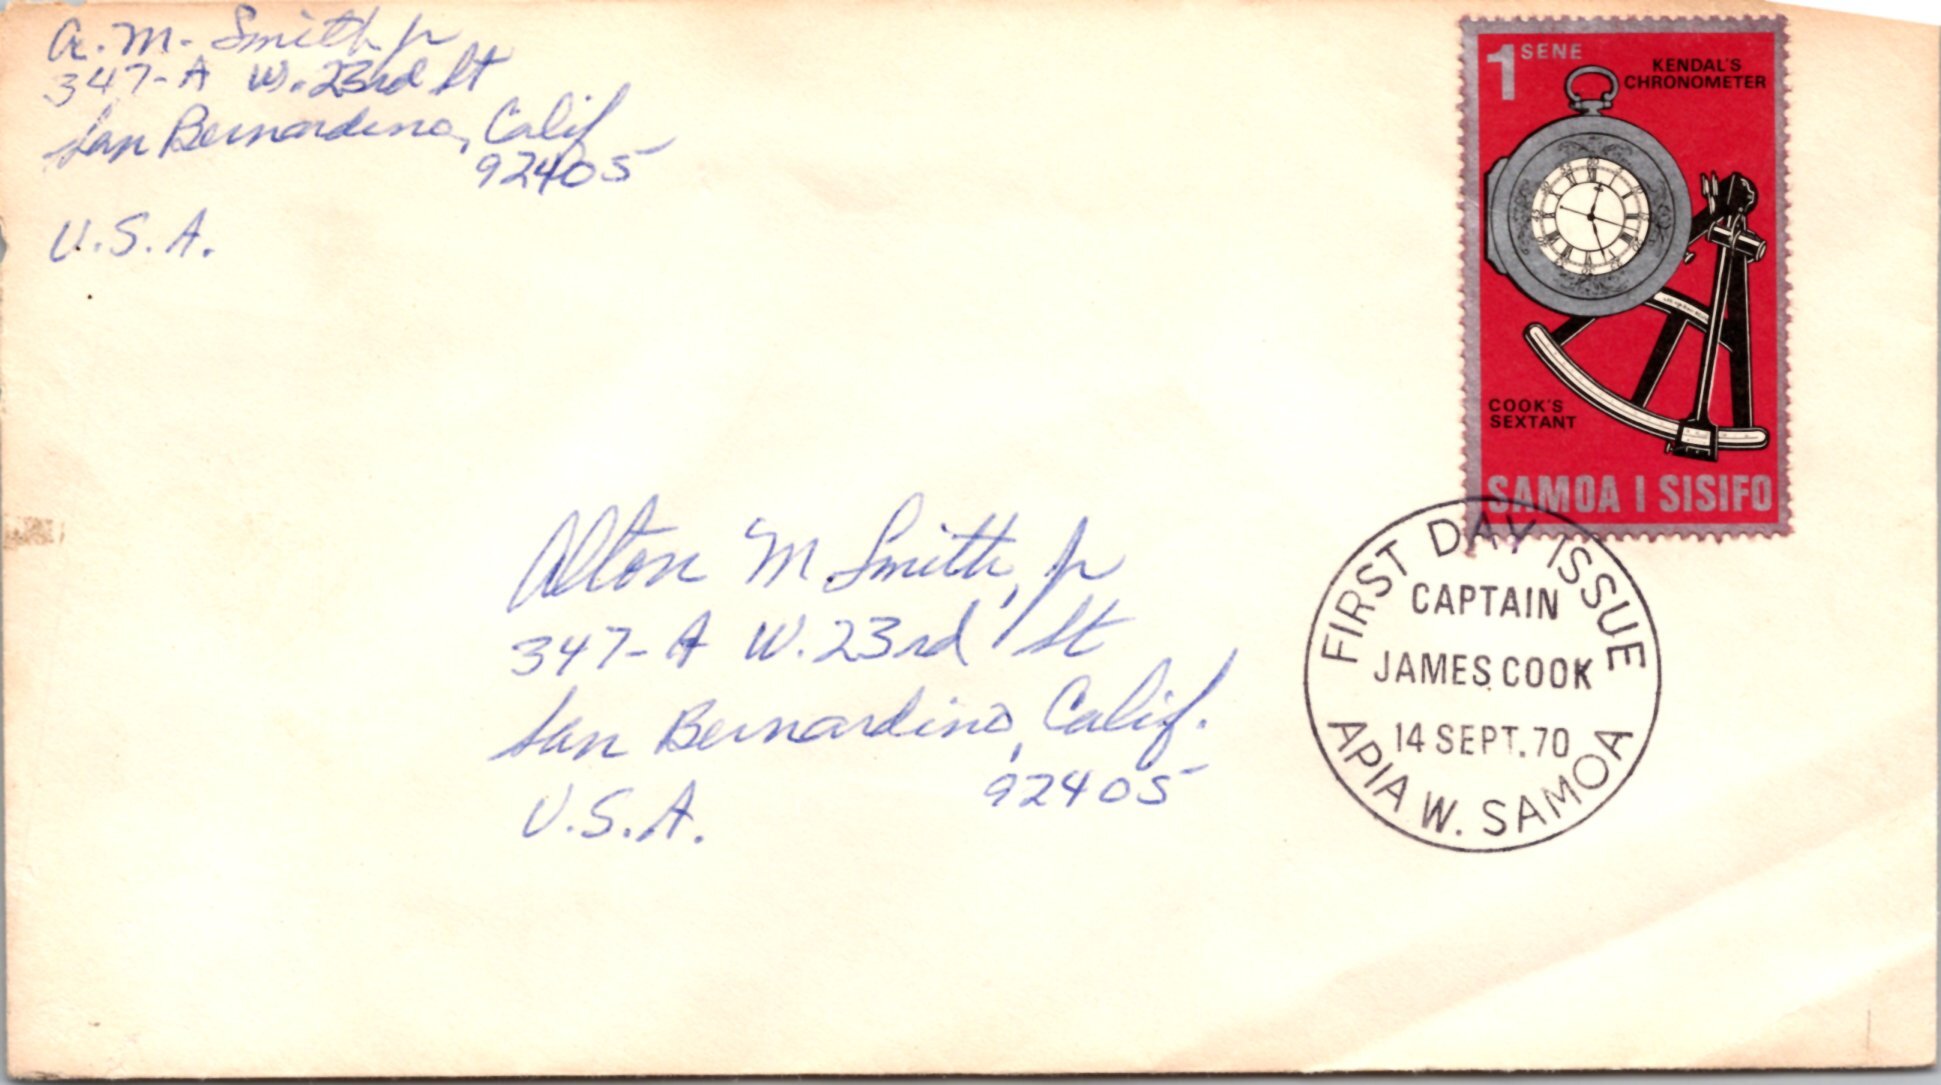 A. M. Smith Jr
347-A W. 23rd St
San Bernardino, Calif
92405
U.S.A.
1 SENE
KENDAL'S
CHRONOMETER
COOK'S
SEXTANT
SAMOA I SISIFO
Alton M. Smith, Jr
347-A W. 23rd St
San Bernardino, Calif.
92405
U.S.A.
FIRST DAY ISSUE
CAPTAIN
JAMES COOK
14 SEPT. 70
APIA W. SAMOA